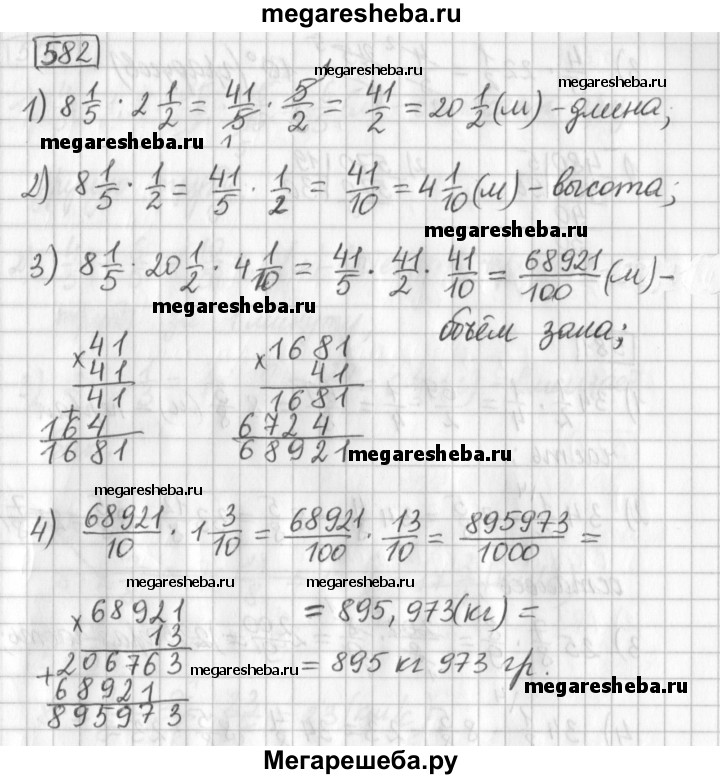 megaresheba.ru
582
megaresheba.ru
megaresheba.ru
1) 8 1/5 · 2 1/2 = 41/5 · 5/2 = 41/2 = 20 1/2 (м) - длина;
1 1
megaresheba.ru
2) 8 1/5 · 1/2 = 41/5 · 1/2 = 41/10 = 4 1/10 (м) - высота;
megaresheba.ru
3) 8 1/5 · 20 1/2 · 4 1/10 = 41/5 · 41/2 · 41/10 = 68921/100 (м) -
megaresheba.ru
объём зала;
× 41
41
+ 41
164
1681
× 1681
41
1681
6724
68921
megaresheba.ru
megaresheba.ru
4) 68921/10 · 1 3/10 = 68921/100 · 13/10 = 895973/1000 =
megaresheba.ru
megaresheba.ru
× 68921
13
+ 206763
68921
895973
= 895,973 (кг) =
= 895 кг 973 гр.
megaresheba.ru
megaresheba.ru
Мегарешеба.ру